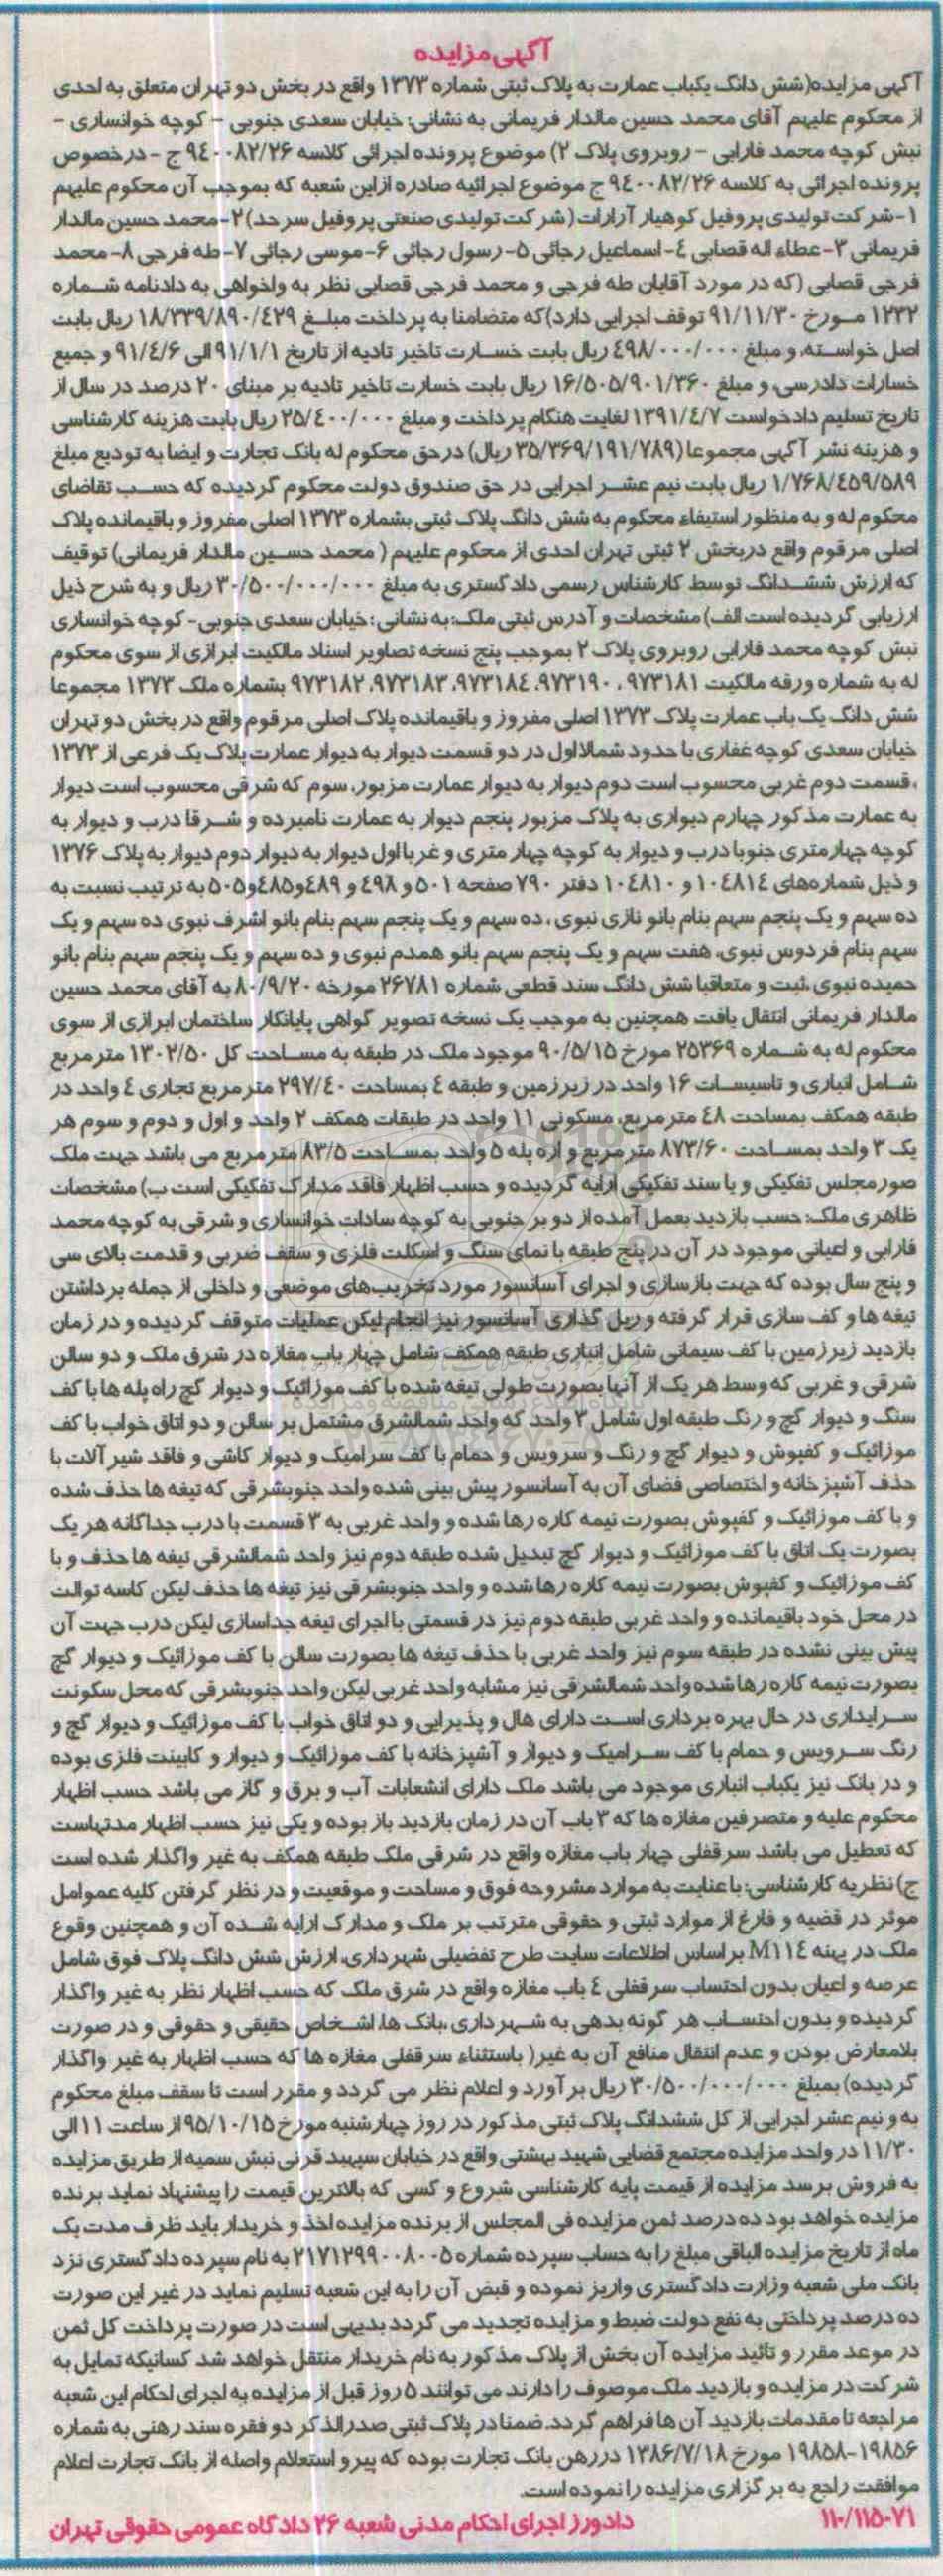 آگهی مزایده
آگهی مزایده(شش دانگ یکباب عمارت به پلاک ثبتی شماره ۱۳۷۳ واقع در بخش دو تهران متعلق به احدی
از محکوم علیهم آقای محمد حسین مالدار فریمانی به نشانی: خیابان سعدی جنوبی - کوچه خوانساری -
نبش کوچه محمد فارابی - روبروی پلاک ۲) موضوع پرونده اجرائی کلاسه ۹٤۰۰۸۲/۲۶ ج - در خصوص
پرونده اجرائی به کلاسه ۹٤۰۰۸۲/۲۶ ج موضوع اجرائیه صادره ازاین شعبه که بموجب آن محکوم علیهم
۱-شرکت تولیدی پروفیل کوهیار آرارات (شرکت تولیدی صنعتی پروفیل سرحد) ۲-محمد حسین مالدار
فریمانی ۳-عطاء اله قصابی ٤- اسماعیل رجائی ۵- رسول رجائی ۶-موسی رجائی ۷-طه فرجی ۸-محمد
فرجی قصابی (که در مورد آقایان طه فرجی و محمد فرجی قصابی نظر به واخواهی به دادنامه شماره
۱۲۳۲ مورخ ۹۱/۱۱/۳۰ توقف اجرایی دارد)که متضامنا به پرداخت مبلغ ۱۸/۳۳۹/۸۹۰/٤۲۹ ریال بابت
اصل خواسته، و مبلغ ٤۹۸/۰۰۰/۰۰۰ ریال بابت خسارت تاخیر تادیه از تاریخ ۹۱/۱/۱ الی ۹۱/٤/۶ و جمیع
خسارات دادرسی، و مبلغ ۱۶/۵۰۵/۹۰۱/۳۶۰ ریال بابت خسارت تاخیر تادیه بر مبنای ۲۰ درصد در سال از
تاریخ تسلیم دادخواست ۱۳۹۱/٤/۷ لغایت هنگام پرداخت و مبلغ ۲۵/٤۰۰/۰۰۰ ریال بابت هزینه کارشناسی
و هزینه نشر آگهی مجموعا (۳۵/۳۶۹/۱۹۱/۷۸۹ ریال) در حق محکوم له بانک تجارت و ایضا به تودیع مبلغ
۱/۷۶۸/٤۵۹/۵۸۹ ریال بابت نیم عشر اجرایی در حق صندوق دولت محکوم گردیده که حسب تقاضای
محکوم له و به منظور استیفاء محکوم به شش دانگ پلاک ثبتی بشماره ۱۳۷۳ اصلی مفروز و باقیمانده پلاک
اصلی مرقوم واقع دربخش ۲ ثبتی تهران احدی از محکوم علیهم ( محمد حسین مالدار فریمانی) توقیف
که ارزش ششدانگ توسط کارشناس رسمی دادگستری به مبلغ ۳۰/۵۰۰/۰۰۰/۰۰۰ ریال و به شرح ذیل
ارزیابی گردیده است الف) مشخصات و آدرس ثبتی ملک: به نشانی : خیابان سعدی جنوبی- کوچه خوانساری
نبش کوچه محمد فارابی روبروی پلاک ۲ بموجب پنج نسخه تصاویر اسناد مالکیت ابرازی از سوی محکوم
له به شماره ورقه مالکیت ۹۷۳۱۸۱ ، ۹۷۳۱۹۰، ۹۷۳۱۸٤، ۹۷۳۱۸۳، ۹۷۳۱۸۲ بشماره ملک ۱۳۷۳ مجموعا
شش دانگ یک باب عمارت پلاک ۱۳۷۳ اصلی مفروز و باقیمانده پلاک اصلی مرقوم واقع در بخش دو تهران
خیابان سعدی کوچه غفاری با حدود شمالا اول در دو قسمت دیوار به دیوار عمارت پلاک یک فرعی از ۱۳۷۳
، قسمت دوم غربی محسوب است دوم دیوار به دیوار عمارت مزبور، سوم که شرقی محسوب است دیوار
به عمارت مذکور چهارم دیواری به پلاک مزبور پنجم دیوار به عمارت نامبرده و شرقا درب و دیوار به
کوچه چهارمتری جنوبا درب و دیوار به کوچه چهار متری و غربا اول دیوار به دیوار دوم دیوار به پلاک ۱۳۷۶
و ذیل شماره‌های ۱۰٤۸۱٤ و ۱۰٤۸۱۰ دفتر ۷۹۰ صفحه ۵۰۱ و ٤۹۸ و ٤۸۹و٤۸۵و۵۰۵ به ترتیب نسبت به
ده سهم و یک پنجم سهم بنام بانو نازی نبوی ، ده سهم و یک پنجم سهم بنام بانو اشرف نبوی ده سهم و یک
سهم بنام فردوس نبوی، هفت سهم و یک پنجم سهم بانو همدم نبوی و ده سهم و یک پنجم سهم بنام بانو
حمیده نبوی ،ثبت و متعاقبا شش دانگ سند قطعی شماره ۲۶۷۸۱ مورخه ۸۰/۹/۲۰ به آقای محمد حسین
مالدار فریمانی انتقال یافت همچنین به موجب یک نسخه تصویر گواهی پایانکار ساختمان ابرازی از سوی
محکوم له به شماره ۲۵۳۶۹ مورخ ۹۰/۵/۱۵ موجود ملک در طبقه به مساحت کل ۱۳۰۲/۵۰ مترمربع
شامل انباری و تاسیسات ۱۶ واحد در زیرزمین و طبقه ٤ بمساحت ۲۹۷/٤۰ متر مربع تجاری ٤ واحد در
طبقه همکف بمساحت ٤۸ مترمربع، مسکونی ۱۱ واحد در طبقات همکف ۲ واحد و اول و دوم و سوم هر
یک ۳ واحد بمساحت ۸۷۳/۶۰ مترمربع و اره پله ۵ واحد بمساحت ۸۳/۵ مترمربع می باشد جهت ملک
صورمجلس تفکیکی و یا سند تفکیکی ارایه گردیده و حسب اظهار فاقد مدارک تفکیکی است ب) مشخصات
ظاهری ملک: حسب بازدید بعمل آمده از دو بر جنوبی به کوچه سادات خوانساری و شرقی به کوچه محمد
فارابی و اعیانی موجود در آن در پنج طبقه با نمای سنگ و اسکلت فلزی و سقف ضربی و قدمت بالای سی
و پنج سال بوده که جهت بازسازی و اجرای آسانسور مورد تخریب‌های موضعی و داخلی از جمله برداشتن
تیغه ها و کف سازی قرار گرفته و ریل گذاری آسانسور نیز انجام لیکن عملیات متوقف گردیده و در زمان
بازدید زیرزمین با کف سیمانی شامل انباری طبقه همکف شامل چهار باب مغازه در شرق ملک و دو سالن
شرقی و غربی که وسط هر یک از آنها بصورت طولی تیغه شده با کف موزائیک و دیوار گچ راه پله ها با کف
سنگ و دیوار گچ و رنگ طبقه اول شامل ۳ واحد که واحد شمالشرق مشتمل بر سالن و دو اتاق خواب با کف
موزائیک و کفپوش و دیوار گچ و رنگ و سرویس و حمام با کف سرامیک و دیوار کاشی و فاقد شیرآلات با
حذف آشپزخانه و اختصاصی فضای آن به آسانسور پیش بینی شده واحد جنوبشرقی که تیغه ها حذف شده
و با کف موزائیک و کفپوش بصورت نیمه کاره رها شده و واحد غربی به ۳ قسمت با درب جداگانه هر یک
بصورت یک اتاق با کف موزائیک و دیوار گچ تبدیل شده طبقه دوم نیز واحد شمالشرقی تیغه ها حذف و با
کف موزائیک و کفپوش بصورت نیمه کاره رها شده و واحد جنوبشرقی نیز تیغه ها حذف لیکن کاسه توالت
در محل خود باقیمانده و واحد غربی طبقه دوم نیز در قسمتی با اجرای تیغه جداسازی لیکن درب جهت آن
پیش بینی نشده در طبقه سوم نیز واحد غربی با حذف تیغه ها بصورت سالن با کف موزائیک و دیوار گچ
بصورت نیمه کاره رها شده واحد شمالشرقی نیز مشابه واحد غربی لیکن واحد جنوبشرقی که محل سکونت
سرایداری در حال بهره برداری است دارای هال و پذیرایی و دو اتاق خواب با کف موزائیک و دیوار گچ و
رنگ سرویس و حمام با کف سرامیک و دیوار و آشپزخانه با کف موزائیک و دیوار و کابینت فلزی بوده
و در بانک نیز یکباب انباری موجود می باشد ملک دارای انشعابات آب و برق و گاز می باشد حسب اظهار
محکوم علیه و متصرفین مغازه ها که ۳ باب آن در زمان بازدید باز بوده و یکی نیز حسب اظهار مدتهاست
که تعطیل می باشد سرقفلی چهار باب مغازه واقع در شرقی ملک طبقه همکف به غیر واگذار شده است
ج) نظریه کارشناسی: با عنایت به موارد مشروحه فوق و مساحت و موقعیت و در نظر گرفتن کلیه عموامل
موثر در قضیه و فارغ از موارد ثبتی و حقوقی مترتب بر ملک و مدارک ارایه شده آن و همچنین وقوع
ملک در پهنه M۱۱٤ بر اساس اطلاعات سایت طرح تفضیلی شهرداری، ارزش شش دانگ پلاک فوق شامل
عرصه و اعیان بدون احتساب سرقفلی ٤ باب مغازه واقع در شرق ملک که حسب اظهار نظر به غیر واگذار
گردیده و بدون احتساب هر گونه بدهی به شهرداری ،بانک ها، اشخاص حقیقی و حقوقی و در صورت
بلامعارض بودن و عدم انتقال منافع آن به غیر( باستثناء سرقفلی مغازه ها که حسب اظهار به غیر واگذار
گردیده) بمبلغ ۳۰/۵۰۰/۰۰۰/۰۰۰ ریال برآورد و اعلام نظر می گردد و مقرر است تا سقف مبلغ محکوم
به و نیم عشر اجرایی از کل ششدانگ پلاک ثبتی مذکور در روز چهارشنبه مورخ ۹۵/۱۰/۱۵ از ساعت ۱۱ الی
۱۱/۳۰ در واحد مزایده مجتمع قضایی شهید بهشتی واقع در خیابان سپهبد قرنی نبش سمیه از طریق مزایده
به فروش برسد مزایده از قیمت پایه کارشناسی شروع و کسی که بالاترین قیمت را پیشنهاد نماید برنده
مزایده خواهد بود ده درصد ثمن مزایده فی المجلس از برنده مزایده اخذ و خریدار باید ظرف مدت یک
ماه از تاریخ مزایده الباقی مبلغ را به حساب سپرده شماره ۲۱۷۱۲۹۹۰۰۸۰۰۵ به نام سپرده دادگستری نزد
بانک ملی شعبه وزارت دادگستری واریز نموده و قبض آن را به این شعبه تسلیم نماید در غیر این صورت
ده درصد پرداختی به نفع دولت ضبط و مزایده تجدید می گردد بدیهی است در صورت پرداخت کل ثمن
در موعد مقرر و تائید مزایده آن بخش از پلاک مذکور به نام خریدار منتقل خواهد شد کسانیکه تمایل به
شرکت در مزایده و بازدید ملک موصوف را دارند می توانند ۵ روز قبل از مزایده به اجرای احکام این شعبه
مراجعه تا مقدمات بازدید آن ها فراهم گردد. ضمنا در پلاک ثبتی صدرالذکر دو فقره سند رهنی به شماره
۱۹۸۵۶-۱۹۸۵۸ مورخ ۱۳۸۶/۷/۱۸ دررهن بانک تجارت بوده که پیرو استعلام واصله از بانک تجارت اعلام
موافقت راجع به برگزاری مزایده را نموده است.
۱۱۰/۱۱۵۰۷۱ دادورز اجرای احکام مدنی شعبه ۲۶ دادگاه عمومی حقوقی تهران